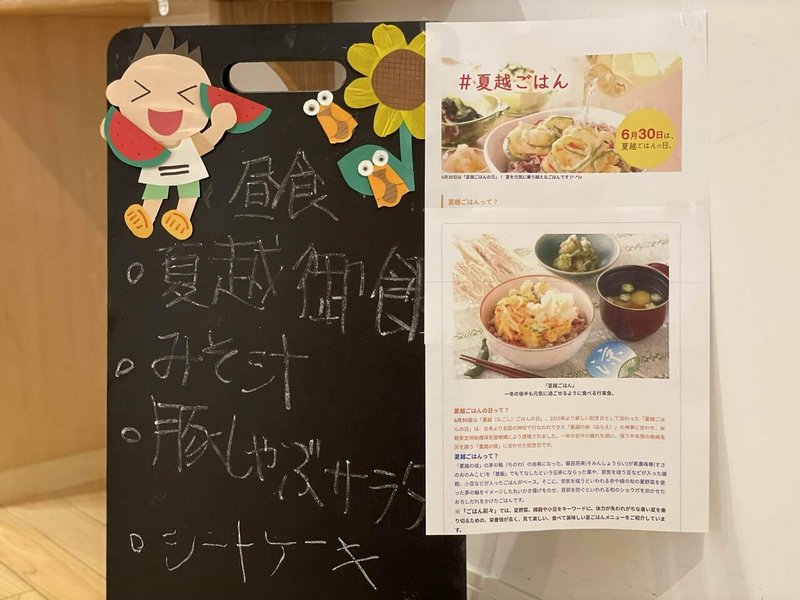 昼食
○夏越御飯
○みそ汁
○豚しゃぶサラダ
○シートケーキ
#夏越ごはん
6月30日は、
夏越ごはんの日。
6月30日は「夏越ごはんの日」！ 夏を元気に乗り越えるごはんです(*^^)v
夏越ごはんって？
涼
「夏越ごはん」
一年の後半も元気に過ごせるように食べる行事食。
夏越ごはんの日って？
6月30日は「夏越（なごし）ごはんの日」。2015年より新しい記念日として加わった「夏越ごは
んの日」は、古来より全国の神社で行なわれてきた「夏越の祓（はらえ）」の神事に合わせ、米
穀安定供給確保支援機構により提唱されました。一年の前半の穢れを祓い、残り半年間の無病息
災を願う「夏越の祓」に合わせた記念日です。
夏越ごはんって？
「夏越の祓」の茅の輪（ちのわ）の由来になった、蘇民将来(そみんしょうらい)が素盞嗚尊(すさ
のおのみこと)を「粟飯」でもてなしたという伝承にならった粟や、邪気を祓う豆などが入った雑
穀、小豆などが入ったごはんがベース。そこに、邪気を祓うといわれる赤や緑の旬の夏野菜を使
った茅の輪をイメージした丸いかき揚げをのせ、百邪を防ぐといわれる旬のショウガを効かせた
おろしだれをかけたごはんです。
※「ごはん彩々」では、夏野菜、雑穀や小豆をキーワードに、体力が失われがちな暑い夏を乗
り切るための、栄養価が高く、見て楽しい、食べて美味しい夏ごはんメニューをご紹介していま
す。